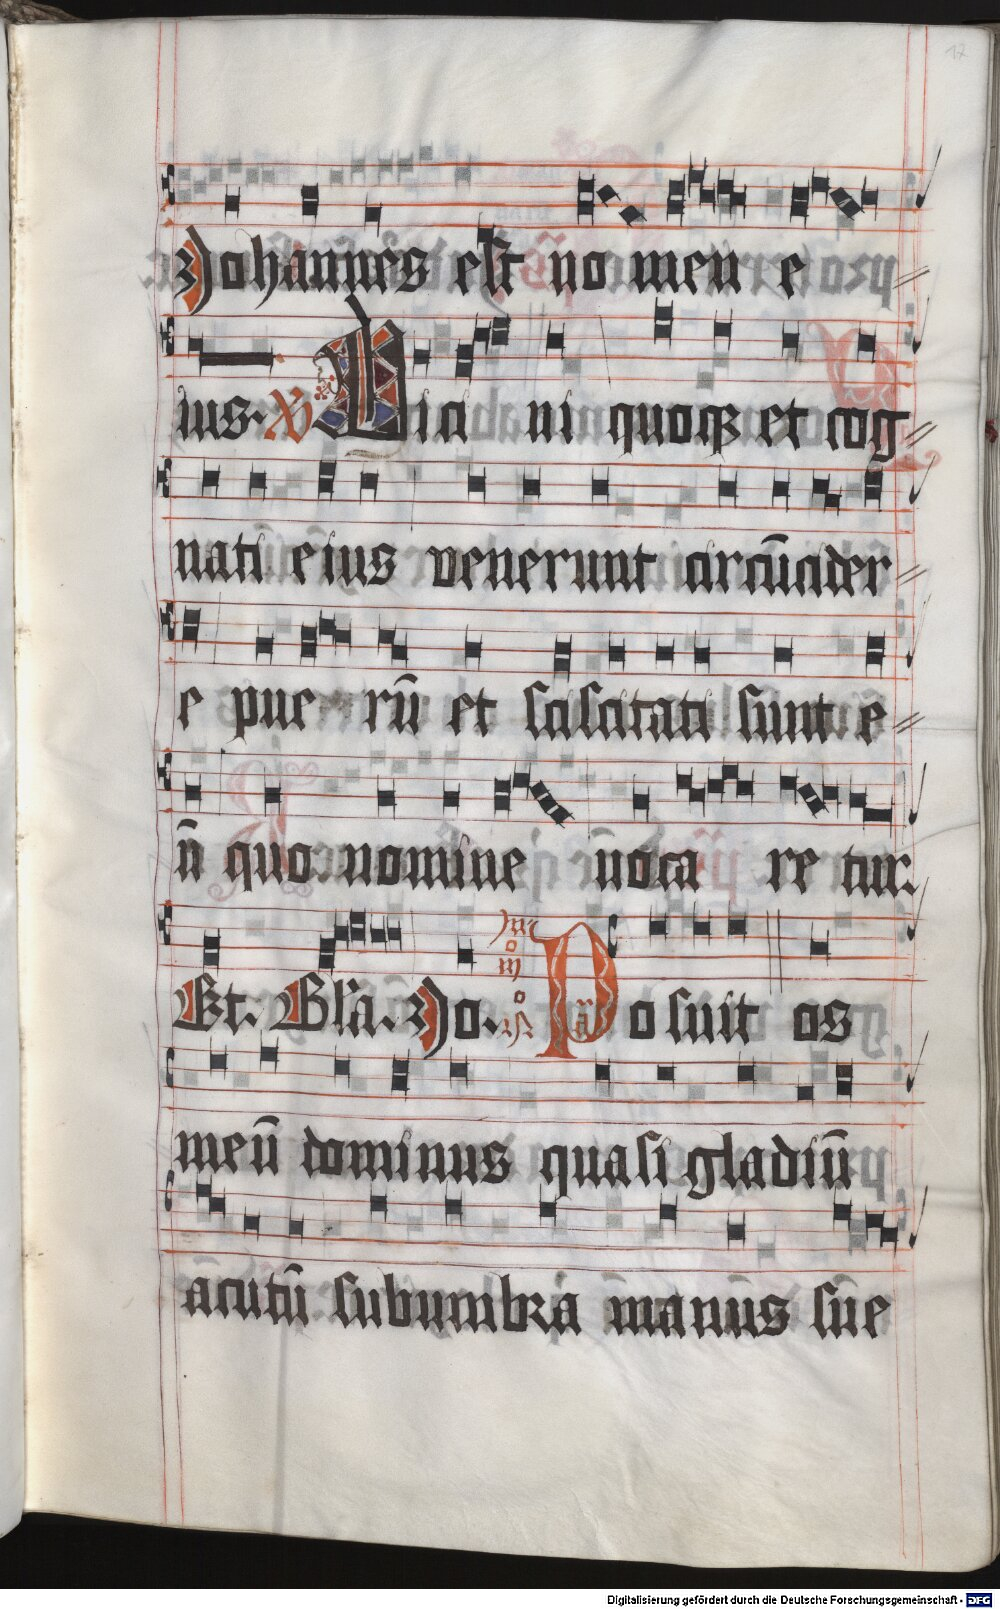 17
Johannes est no men e
ius. V Vici ni quoqꝫ et cog
nati eius venerunt circūcider
e pue rū et sciscitati sunt e
ū quo nomine uoca re tur.
Et. Gl'a. Jo. Posuit os
meū dominus quasi gladiū
acutū sub umbra manus sue
Digitalisierung gefördert durch die Deutsche Forschungsgemeinschaft - DFG